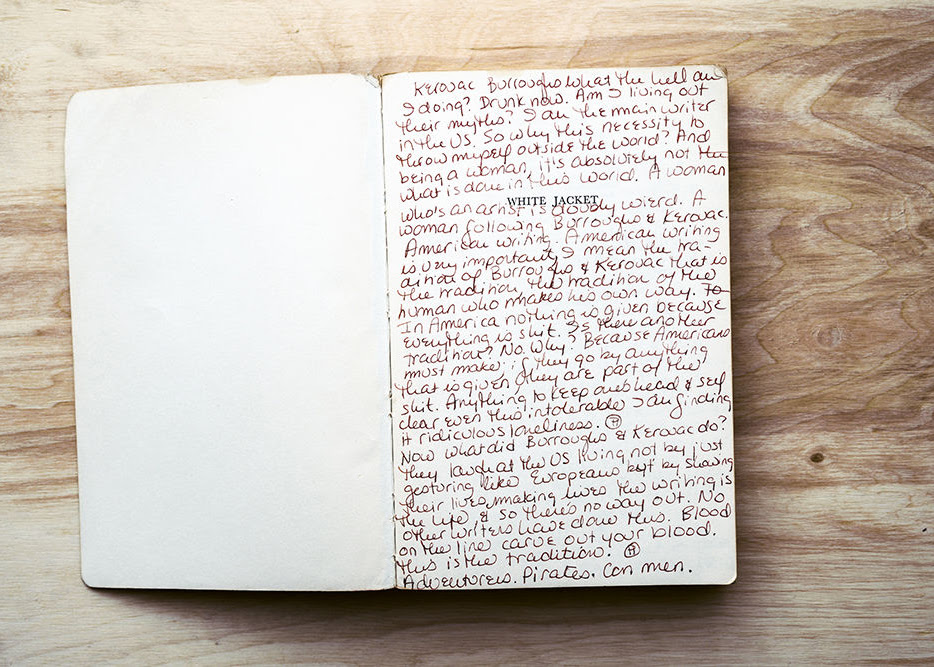 Kerouac Burroughs what the hell am
I doing? Drunk now. Am I living out
their myths? I am the main writer
in the US. So why this necessity to
throw myself outside the world? And
being a woman, it's absolutely not the
what is done in this world. A woman
WHITE JACKET
who's an artist is cloudly wierd. A
woman following Burroughs & Kerovac.
American writing. American writing
is very important, I mean the tra-
dition of Burroughs & Kerovac that is
the tradition the tradition of the
human who makes his own way. To
In America nothing is given because
everything is shit. Is there another
tradition? No. Why? Because Americans
must make; if they go by anything
that is given they are part of the
shit. Anything to keep and head & self
clear even this intolerable I am finding
it ridiculous loneliness. Ⓗ
Now what did Burroughs & Kerovac do?
They laugh at the US living not by just
gesturing like Europeans but by showing
their lives, making lives the writing is
the life, & so there's no way out. No
other writers have done this. Blood
on the line carve out your blood.
This is the tradition. Ⓗ
Adventurers. Pirates. Con men.